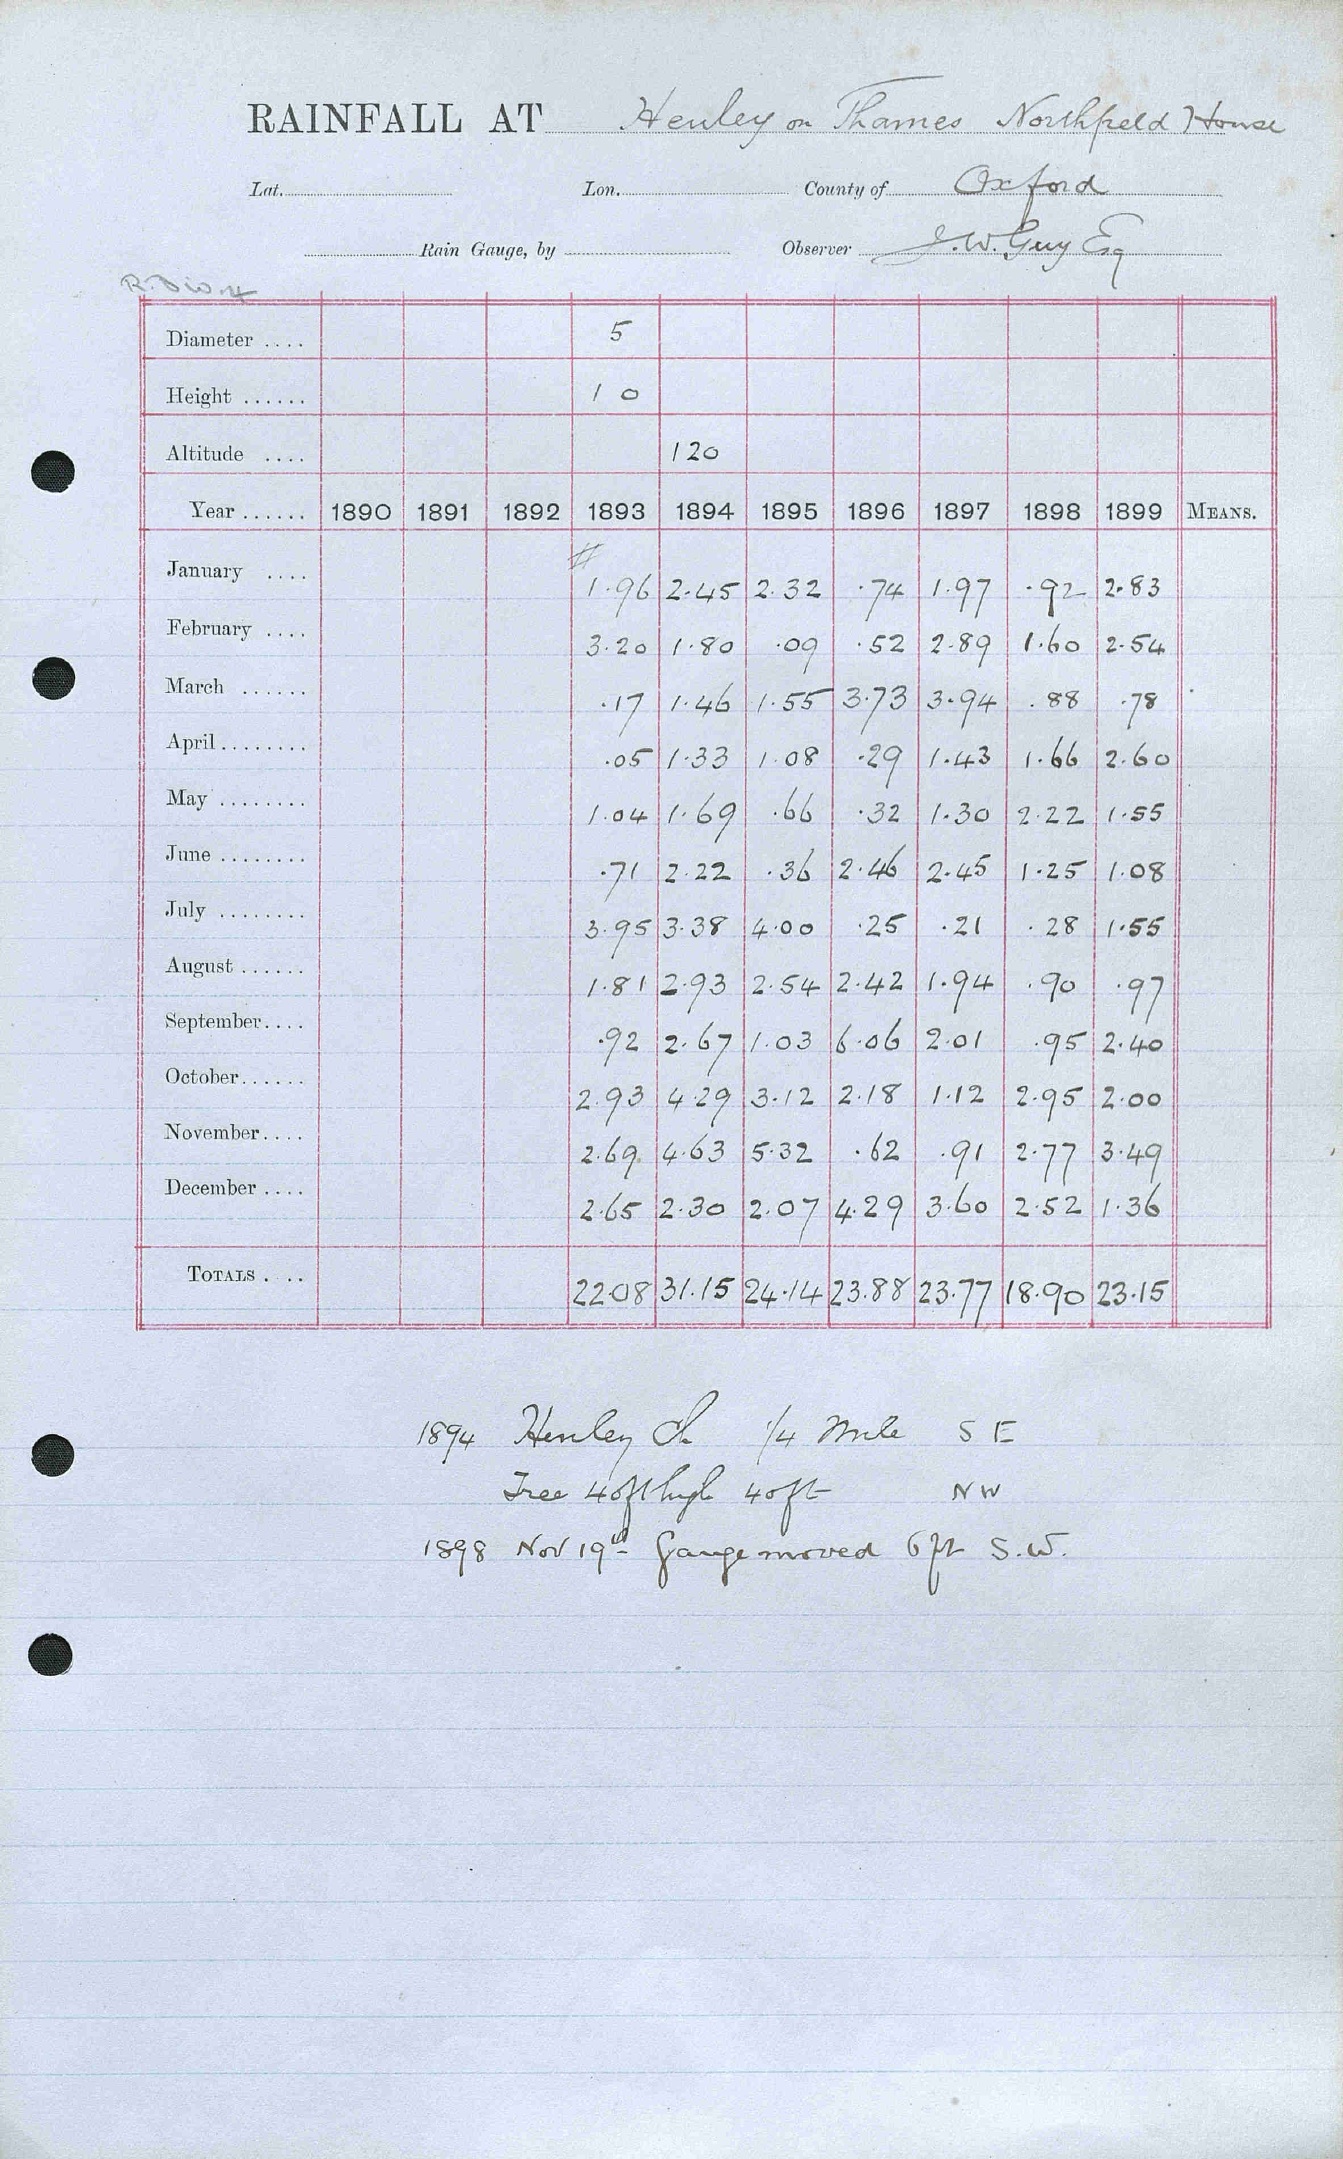 RAINFALL AT Henley on Thames Northfield House
Lat. Lon. County of Oxford
Rain Gauge, by Observer J.W. Guy Esq
R. Div. 4
Diameter .... 5
Height ...... 1 0
Altitude .... 120
Year ...... 1890 1891 1892 1893 1894 1895 1896 1897 1898 1899 MEANS.
January .... 1.96 2.45 2.32 .74 1.97 .92 2.83
February .... 3.20 1.80 .09 .52 2.89 1.60 2.54
March ...... .17 1.46 1.55 3.73 3.94 .88 .78
April ........ .05 1.33 1.08 .29 1.43 1.66 2.60
May ........ 1.04 1.69 .66 .32 1.30 2.22 1.55
June ........ .71 2.22 .36 2.46 2.45 1.25 1.08
July ........ 3.95 3.38 4.00 .25 .21 .28 1.55
August ...... 1.81 2.93 2.54 2.42 1.94 .90 .97
September.... .92 2.67 1.03 6.06 2.01 .95 2.40
October...... 2.93 4.29 3.12 2.18 1.12 2.95 2.00
November.... 2.69 4.63 5.32 .62 .91 2.77 3.49
December .... 2.65 2.30 2.07 4.29 3.60 2.52 1.36
TOTALS .... 22.08 31.15 24.14 23.88 23.77 18.90 23.15
1894 Henley Ch 1/4 Mile S E
Tree 40ft high 40ft NW
1898 Nov 19th Gauge moved 6 ft S.W.